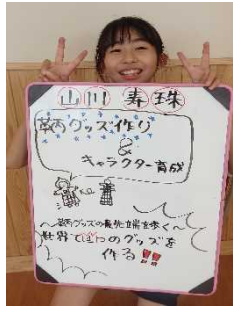 山川 寿珠
グッズ作り
&
キャラクター育成
グッズの最先端を歩く～
世界で1つのグッズを
作る!!